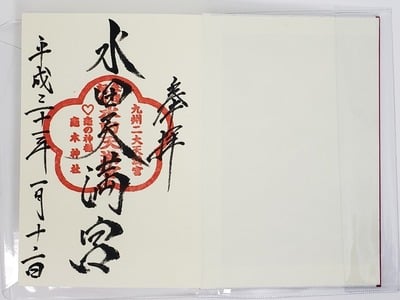 奉拝
九州二大天満宮
水田天満宮
♡恋の神様
恋木神社
平成三十一年一月十六日